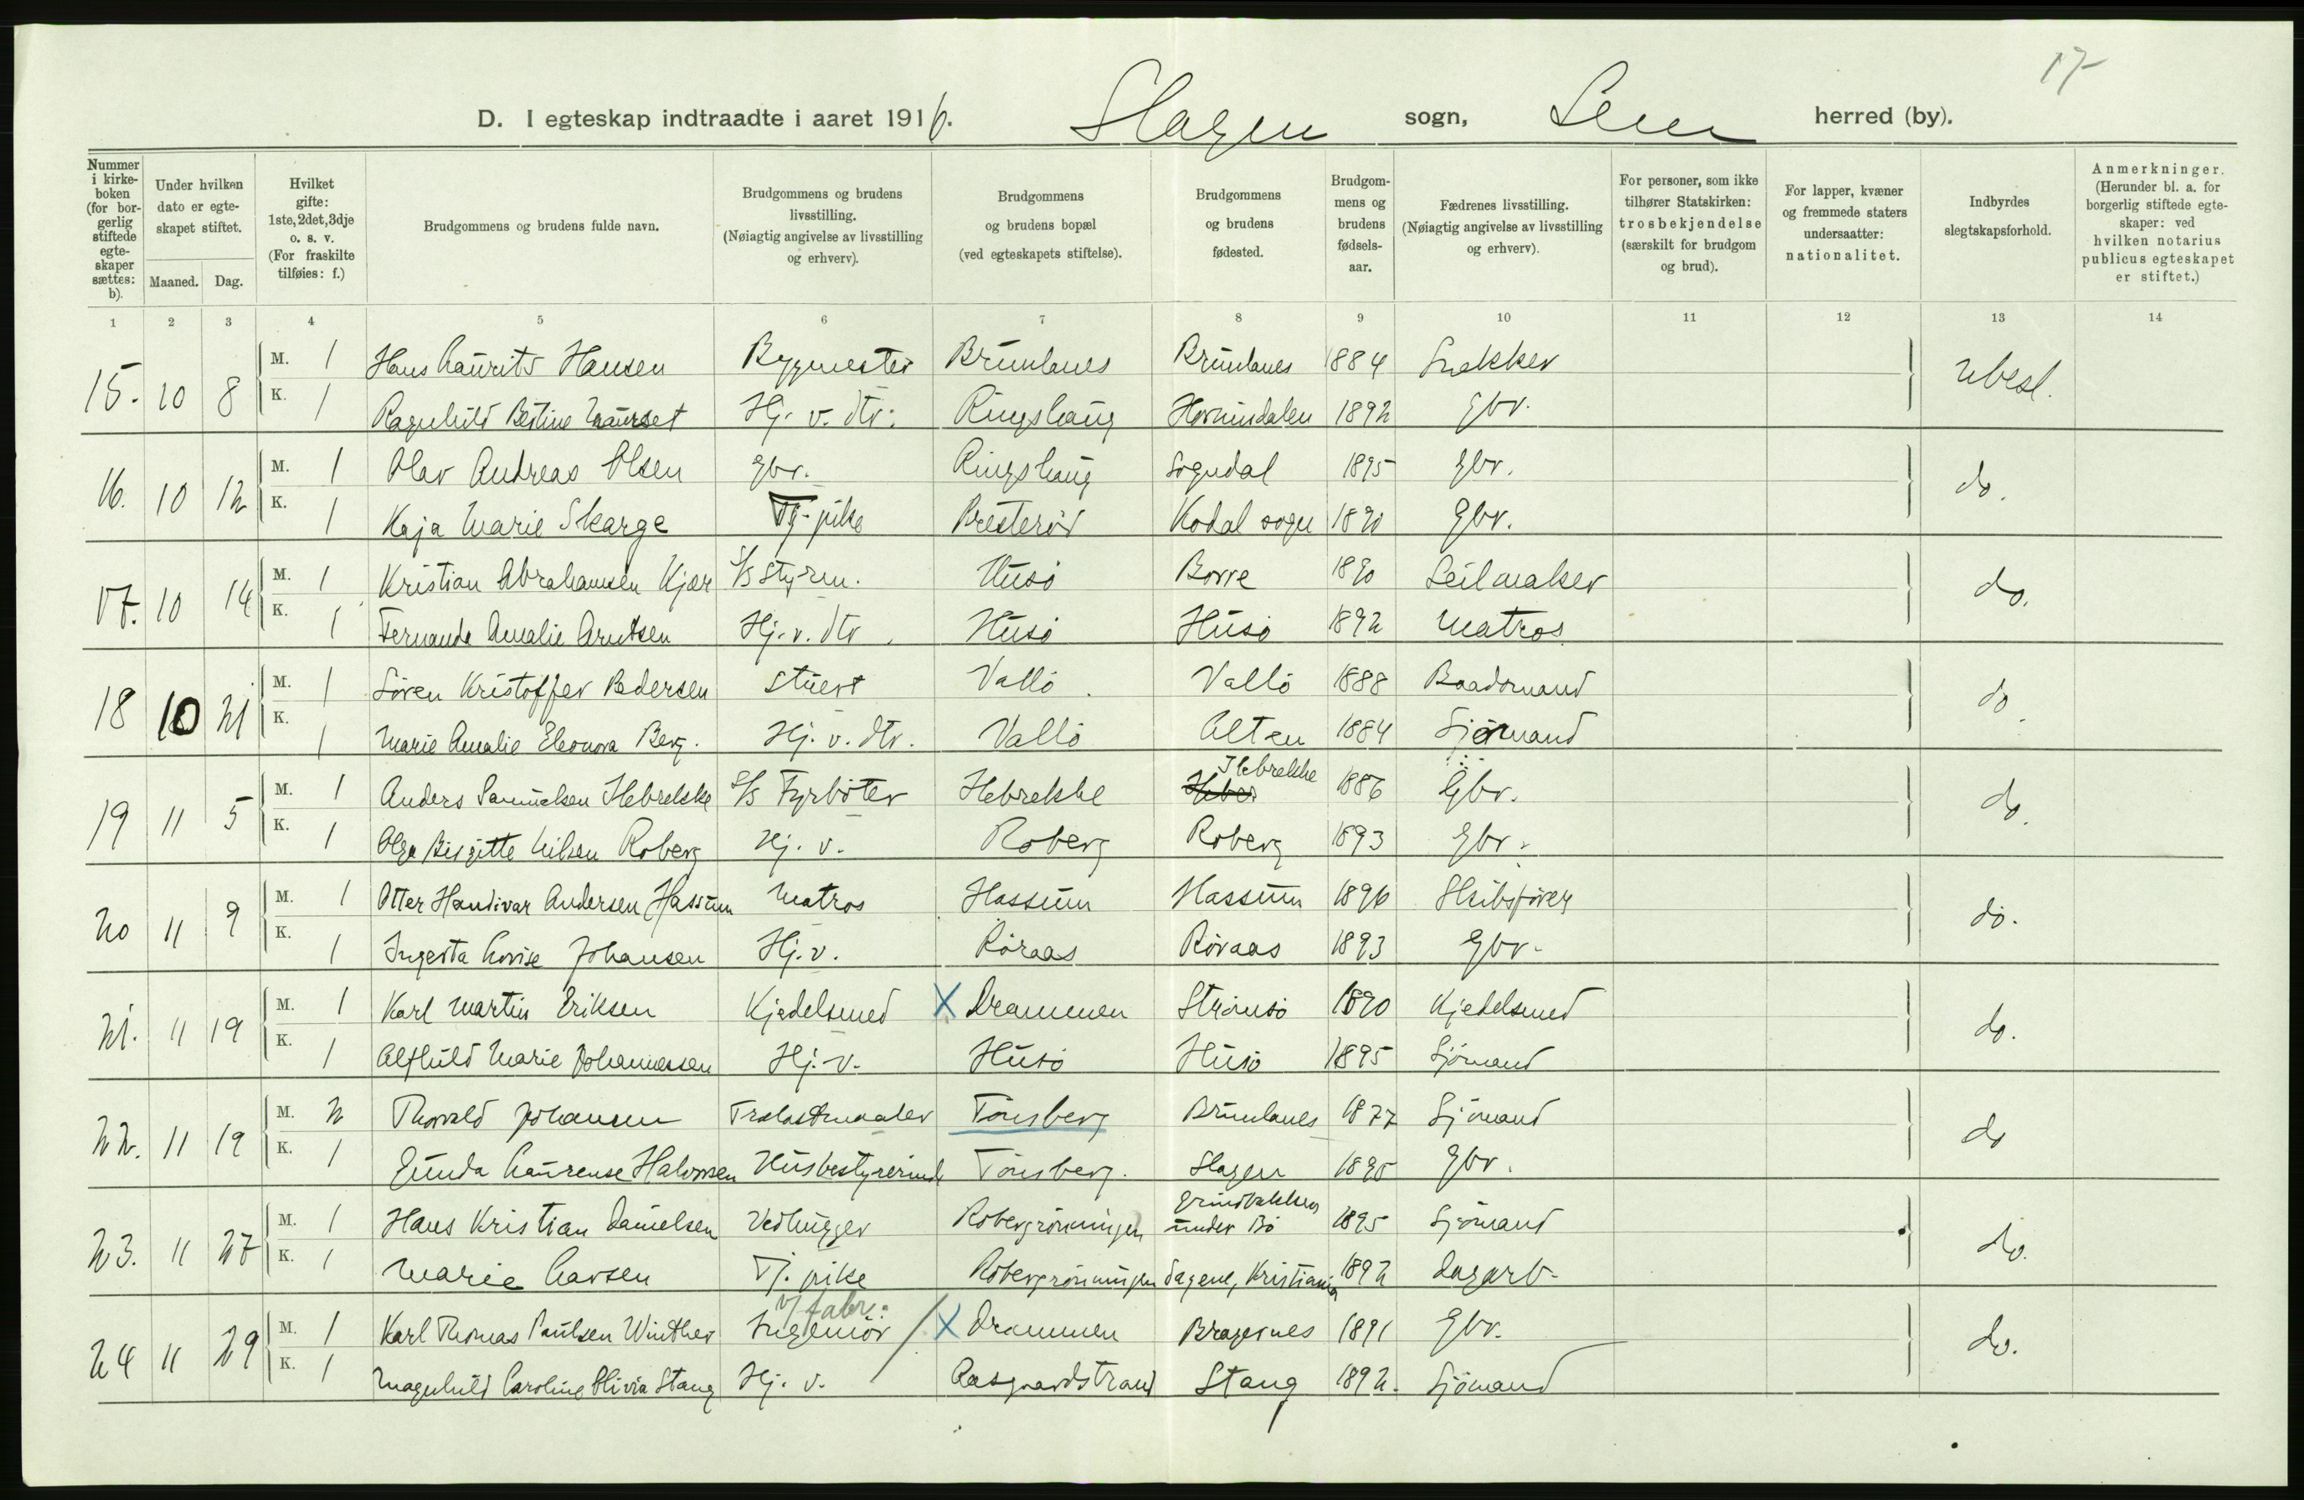 17
D. I egteskap indtraadte i aaret 1916. Slagen sogn, Sem herred (by).
Nummer i kirkeboken (for borgerlig stiftede egteskaper sættes: b).
Under hvilken dato er egteskapet stiftet.
Maaned. Dag.
Hvilket gifte: 1ste, 2det, 3dje o. s. v. (For fraskilte tilføies: f.)
Brudgommens og brudens fulde navn.
Brudgommens og brudens livsstilling. (Nøiagtig angivelse av livsstilling og erhverv).
Brudgommens og brudens bopæl (ved egteskapets stiftelse).
Brudgommens og brudens fødested.
Brudgommens og brudens fødselsaar.
Fædrenes livsstilling. (Nøiagtig angivelse av livsstilling og erhverv).
For personer, som ikke tilhører Statskirken: trosbekjendelse (særskilt for brudgom og brud).
For lapper, kvæner og fremmede staters undersaatter: nationalitet.
Indbyrdes slegtskapsforhold.
Anmerkninger. (Herunder bl. a. for borgerlig stiftede egteskaper: ved hvilken notarius publicus egteskapet er stiftet.)
1 2 3 4 5 6 7 8 9 10 11 12 13 14
15. 10 8 M. 1 Hans Laurits Hansen Bygmester Brunlanes Brunlanes 1884 Snekker ubesl.
K. 1 Ragnhild Bertine Maurset Hj. v. dtr. Ringshaug Hornindalen 1892 Gbr.
16. 10 12 M. 1 Olav Andreas Olsen Gbr. Ringshaug Sogndal 1895 Gbr. do.
K. 1 Kaja Marie Skarge Tj. pike Presterød Kodal sogn 1890 Gbr.
17. 10 14 M. 1 Kristian Abrahamsen Kjær S/S Styrm. Husö Borre 1890 Seilmaker do.
K. 1 Fernanda Amalie Arntsen Hj. v. dtr. Husö Husö 1892 Matros
18 10 21 M. 1 Sören Kristoffer Pedersen Stuert Vallö Vallö 1888 Baadsmand do.
K. 1 Marie Amalie Eleonora Berg. Hj. v. dtr. Vallö Alten 1884 Sjömand
19 11 5 M. 1 Anders Samuelsen Ilebrekke S/S Fyrböter Ilebrekke Ilebrekke 1886 Gbr. do.
K. 1 Olga Birgitte Nilsen Roberg Hj. v. Roberg Roberg 1893 Gbr.
20 11 9 M. 1 Otter Handivar Andersen Hassum Matros Hassum Hassum 1896 Skibsförer do.
K. 1 Ingerta Lovise Johansen Hj. v. Röraas Röraas 1893 Gbr.
21. 11 19 M. 1 Karl Martin Eriksen Kjedelsmed X Drammen Strömsö 1890 Kjedelsmed do.
K. 1 Alfhild Marie Johannessen Hj. v. Husö Husö 1895 Sjömand
22. 11 19 M. 2 Thorvald Johansen Trælastmaaler Tönsberg Brunlanes 1877 Sjömand do
K. 1 Gunda Laurense Halvorsen Husbestyrerinde Tönsberg. Slagen 1890 Gbr.
23. 11 27 M. 1 Hans Kristian Danielsen Vedhugger Robergrönningen Grindbakken under Bö 1895 Sjömand do.
K. 1 Marie Larsen Tj. pike Robergrönningen Sagene, Kristiania 1892 Dagarb.
24 11 29 M. 1 Karl Thomas Paulsen Winther Ingeniör v/ fabr: X Drammen Bragernes 1891 Gbr. do.
K. 1 Magnhild Caroline Olivia Stang Hj. v. Aasgaardstrand Stang 1892. Sjömand